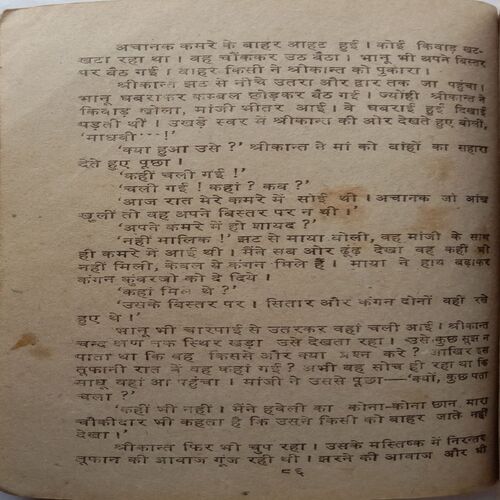 अचानक कमरे के बाहर आहट हुई । कोई किवाड़ खट-
खटा रहा था । वह चौंककर उठ बैठा । भानू भी अपने बिस्तर
पर बैठ गई । बाहर किसी ने श्रीकान्त को पुकारा ।
श्रीकान्त झट से नीचे उतरा और द्वार तक जा पहुंचा ।
भानू घबराकर कम्बल छोड़कर बैठ गई । ज्योंही श्रीकान्त ने
किवाड़ खोला, मांजी भीतर आई । वे घबराई हुई दिखाई
पड़ती थीं । उखड़े स्वर में श्रीकान्त की ओर देखते हुए बोलीं,
'माधवी···!'
'क्या हुआ उसे ?' श्रीकान्त ने मां को बांहों का सहारा
देते हुए पूछा ।
'कहीं चली गई !'
'चली गई ! कहां ? कब ?'
'आज रात मेरे कमरे में सोई थी । अचानक जो आंख
खुली तो वह अपने बिस्तर पर न थी ।'
'अपने कमरे में हो शायद ?'
'नहीं मालिक !' झट से माया बोली, वह मांजी के साथ
ही कमरे में आई थी । मैंने सब ओर ढूंढ़ देखा वह कहीं भी
नहीं मिली, केवल ये कंगन मिले हैं । माया ने हाथ बढ़ाकर
कंगन कुंवरजी को दे दिये ।
'कहां मिले थे ?'
'उसके बिस्तर पर । सितार और कंगन दोनों वहीं रखे
हुए थे ।'
भानू भी चारपाई से उतरकर वहां चली आई । श्रीकान्त
चन्द क्षण तक स्थिर खड़ा उसे देखता रहा । उसे कुछ सूझ न
पाता था कि वह किससे और क्या प्रश्न करे ? आखिर इस
तूफानी रात में वह कहां गई ? अभी वह सोच ही रहा था कि
साधू वहां आ पहुंचा । मांजी ने उससे पूछा—'क्यों, कुछ पता
चला ?'
'कहीं भी नहीं । मैंने हवेली का कोना-कोना छान मारा
चौकीदार भी कहता है कि उसने किसी को बाहर जाते नहीं
देखा ।'
श्रीकान्त फिर भी चुप रहा । उसके मस्तिष्क में निरन्तर
तूफान की आवाज गूंज रही थी । झरने की आवाज और भी
८६